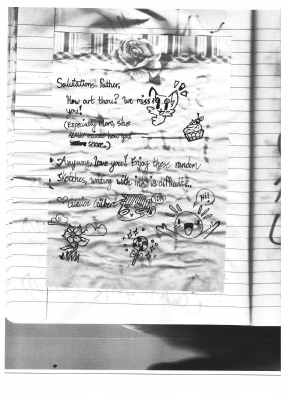 Salutations Father,
How art thou? We miss
you!
(Especially Mom, she
how you
snore..)
Anyway, love you! Enjoy these random
Sketches, writing with this is difficult...
Hi!